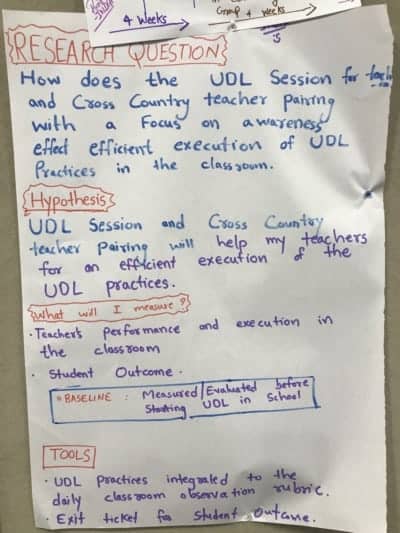 4 Weeks
Group 4 weeks
is
RESEARCH QUESTION
How does the UDL Session for
and Cross Country teacher pairing
with a Focus on awareness
effect efficient execution of UDL
Practices in the classroom.
Hypothesis
UDL Session and Cross Country
teacher Pairing will help my teachers
for an efficient execution of the
UDL practices.
What will I measure?
· Teacher's performance and execution in
the classroom
· Student Outcome.
* BASELINE : Measured/Evaluated before
Starting UDL in School
TOOLS
· UDL practices integrated to the
daily classroom observation rubric.
· Exit ticket for Student Outcome.